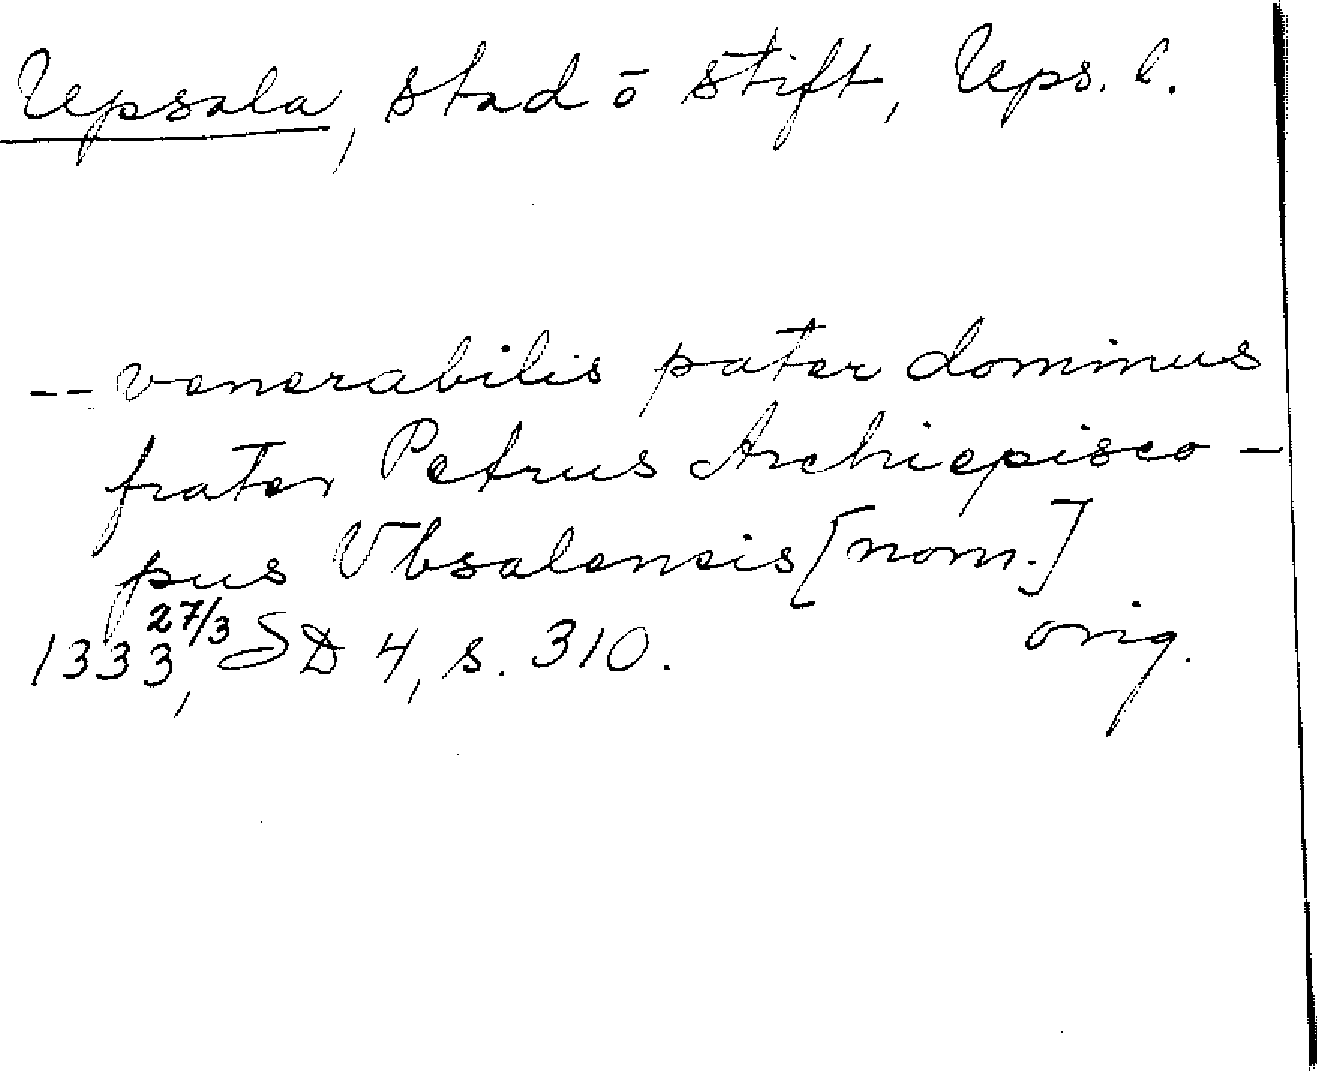 Upsala, stad ō stift, Ups. l.
-- venerabilis pater dominus
frater Petrus Archiepisco-
pus Vbsalensis [nom.]
1333, 27/3 SD 4, s. 310. orig.